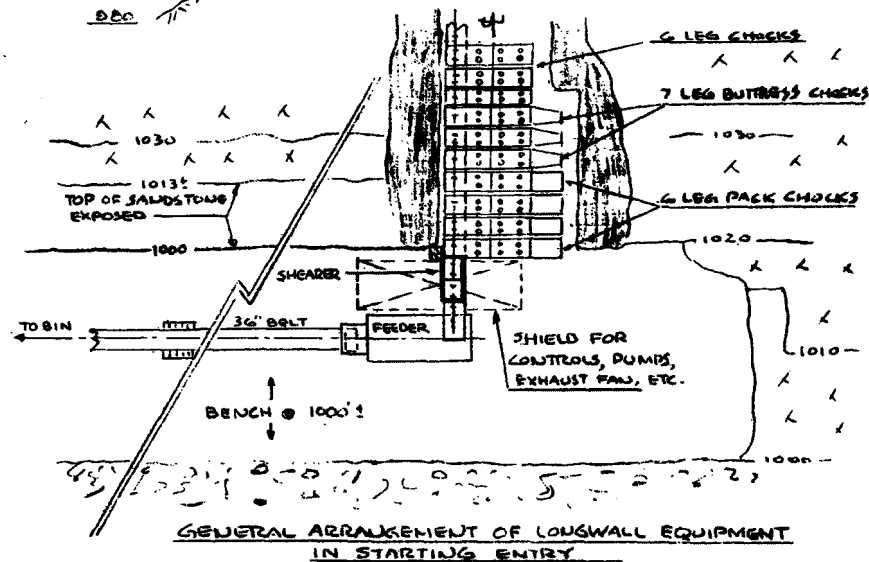 980
6 LEG CHOCKS
7 LEG BUTTRESS CHOCKS
1030
1030
1013±
TOP OF SANDSTONE
EXPOSED
6 LEG PACK CHOCKS
1000
1020
SHEARER
TO BIN
36" BELT
FEEDER
SHIELD FOR
CONTROLS, PUMPS,
EXHAUST FAN, ETC.
1010
BENCH @ 1000'±
1000
GENERAL ARRANGEMENT OF LONGWALL EQUIPMENT
IN STARTING ENTRY